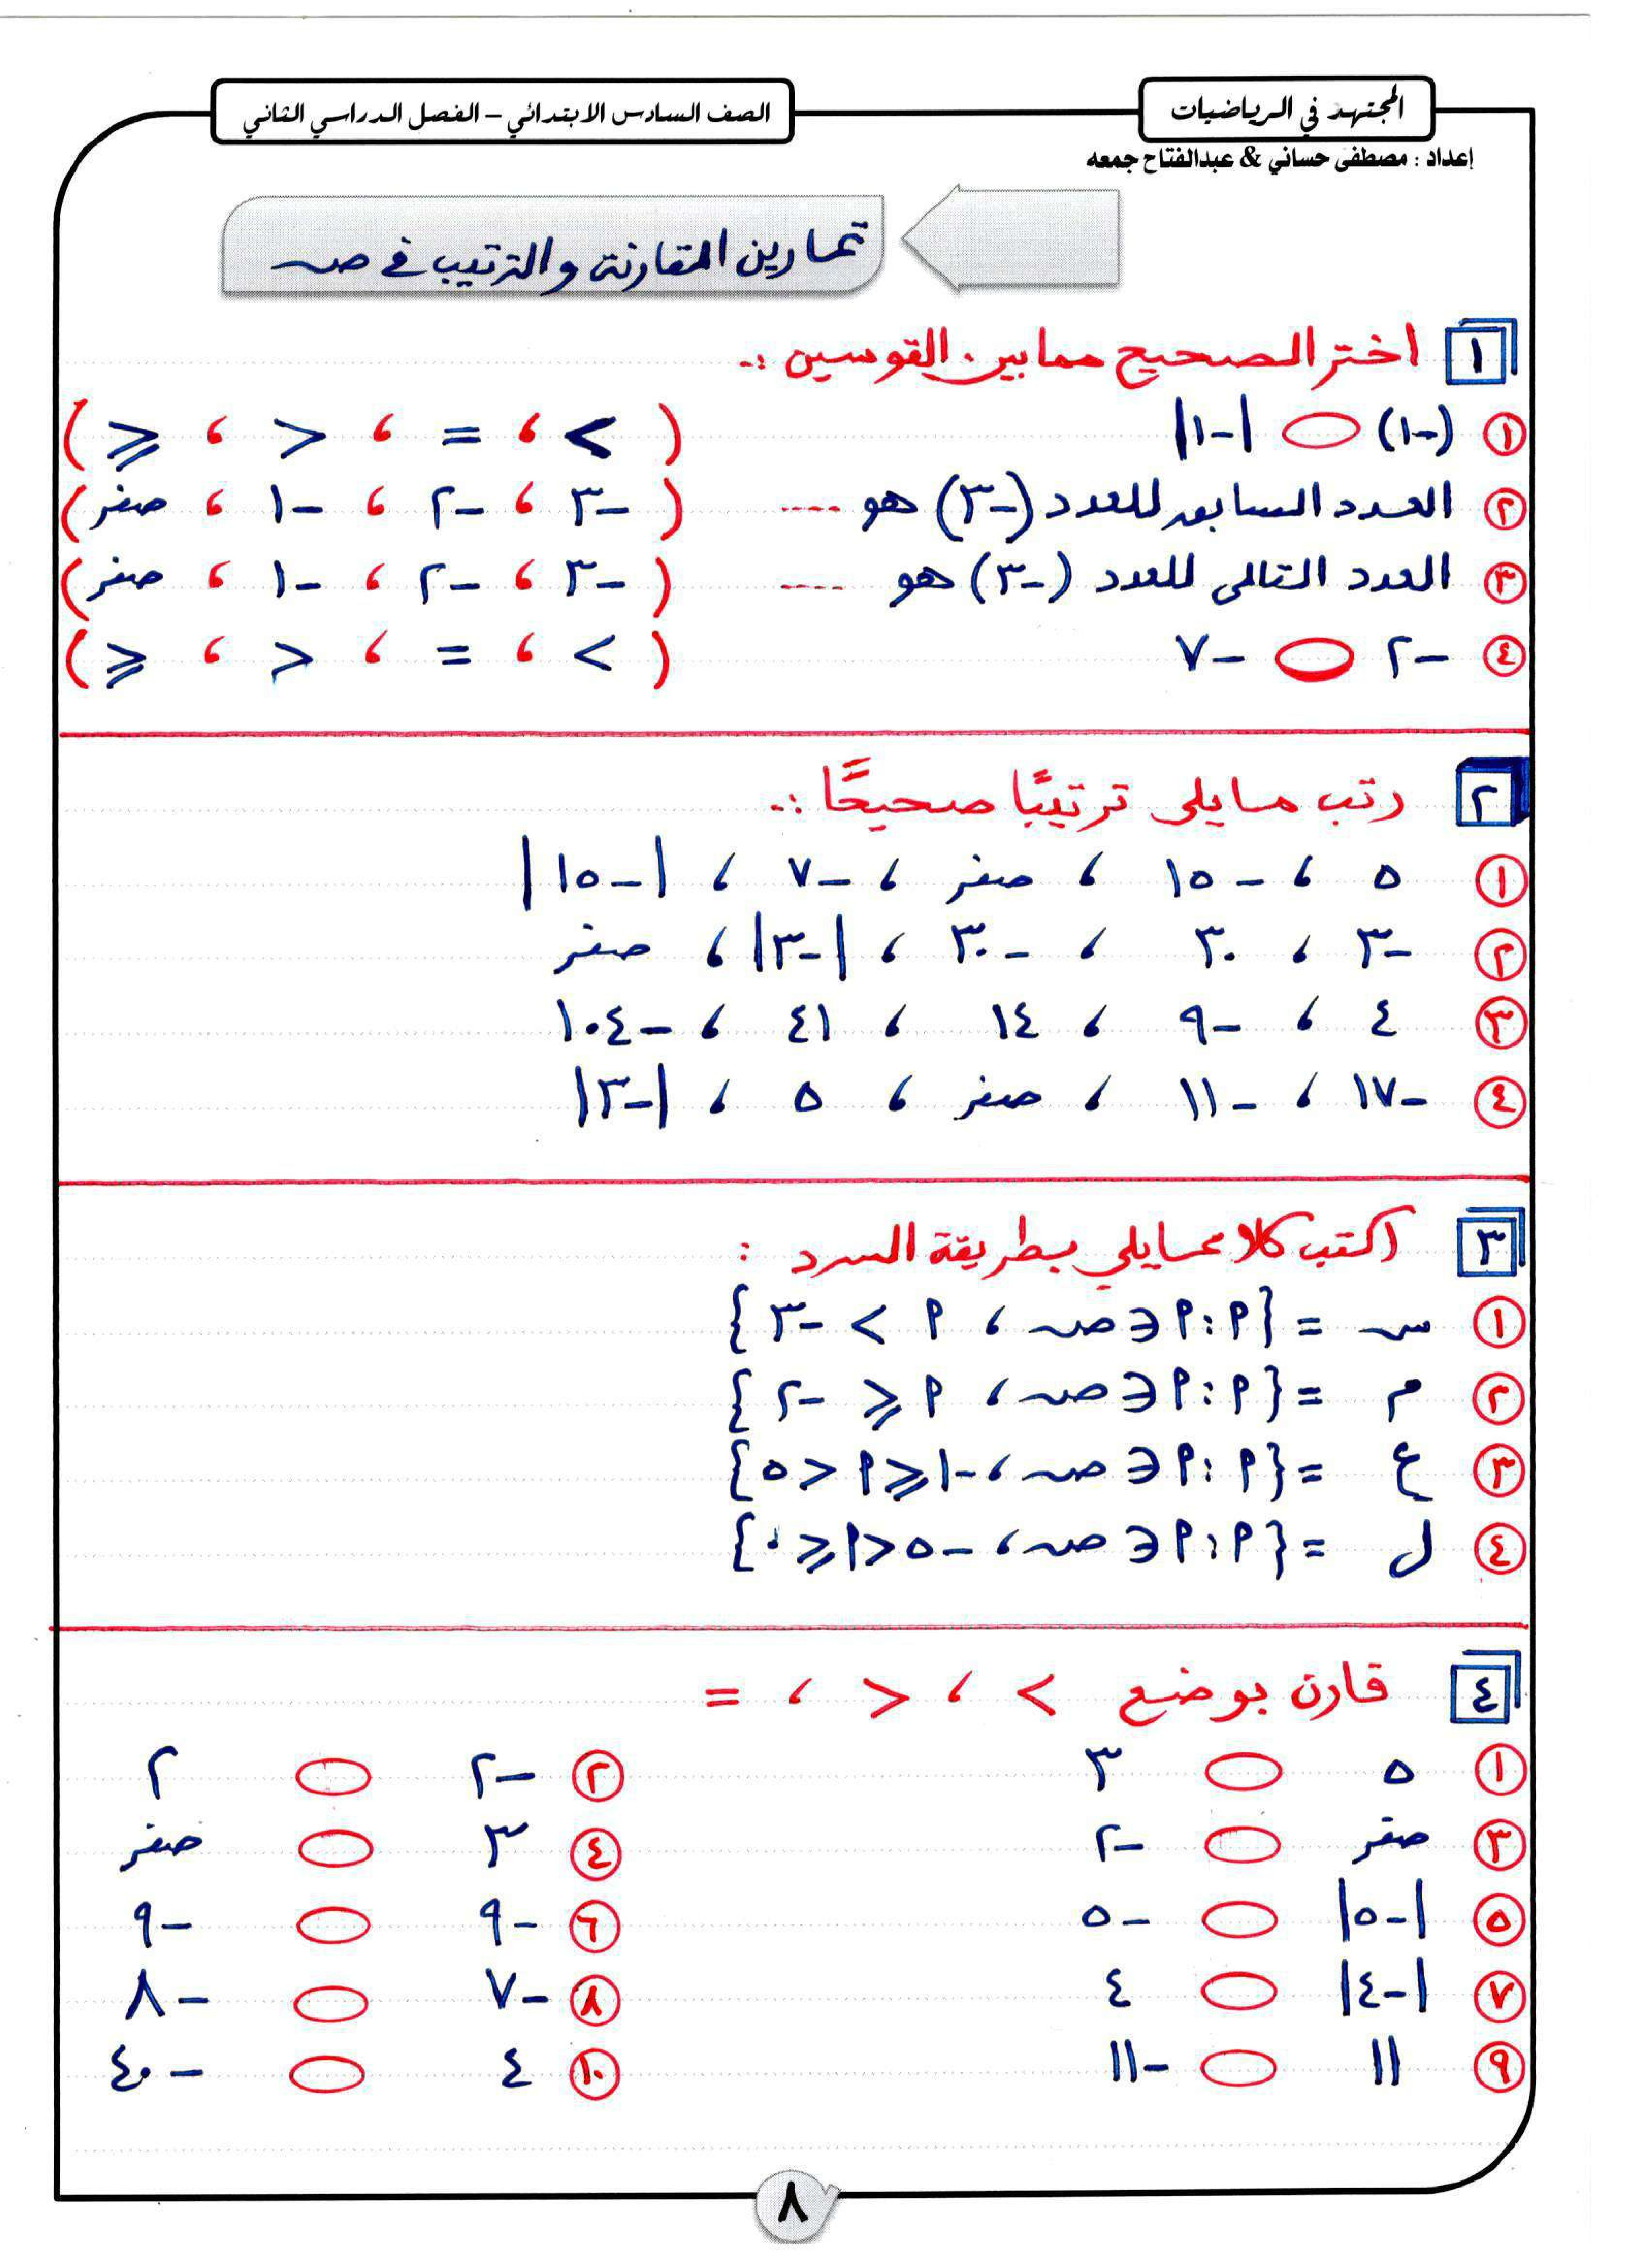 المجتهد في الرياضيات
الصف السادس الابتدائي – الفصل الدراسي الثاني
إعداد : مصطفى حساني & عبدالفتاح جمعه
تمارين المقارنة والترتيب في صـ
١ اختر الصحيح مما بين القوسين :ـ
① (-١) ⬭ |-١| ( > ، = ، < ، ≤ )
② العدد السابق للعدد (-٣) هو ---- ( -٣ ، -٢ ، -١ ، صفر )
③ العدد التالى للعدد (-٣) هو ---- ( -٣ ، -٢ ، -١ ، صفر )
④ -٢ ⬭ -٧ ( > ، = ، < ، ≤ )
٢ رتب ما يلى ترتيبًا صحيحًا :ـ
① ٥ ، -١٥ ، صفر ، -٧ ، |-١٥|
② -٣ ، ٣٠ ، -٣٠ ، |-٣| ، صفر
③ ٤ ، -٩ ، ١٤ ، ٤١ ، -١٠٤
④ -١٧ ، -١١ ، صفر ، ٥ ، |-٣|
٣ اكتب كلا مما يلي بطريقة السرد :
① سـ = {أ : أ ∈ صـ ، أ > -٣}
② م = {أ : أ ∈ صـ ، أ ≤ -٢}
③ ع = {أ : أ ∈ صـ ، -١ ≤ أ < ٥}
④ ل = {أ : أ ∈ صـ ، -٥ < أ ≤ ٠}
٤ قارن بوضع > ، < ، =
① ٥ ⬭ ٣ ② -٢ ⬭ ٢
③ صفر ⬭ -٢ ④ ٣ ⬭ صفر
⑤ |-٥| ⬭ -٥ ⑥ -٩ ⬭ -٩
⑦ |-٤| ⬭ ٤ ⑧ -٧ ⬭ -٨
⑨ ١١ ⬭ -١١ ⑩ ٤ ⬭ -٤٠
٨